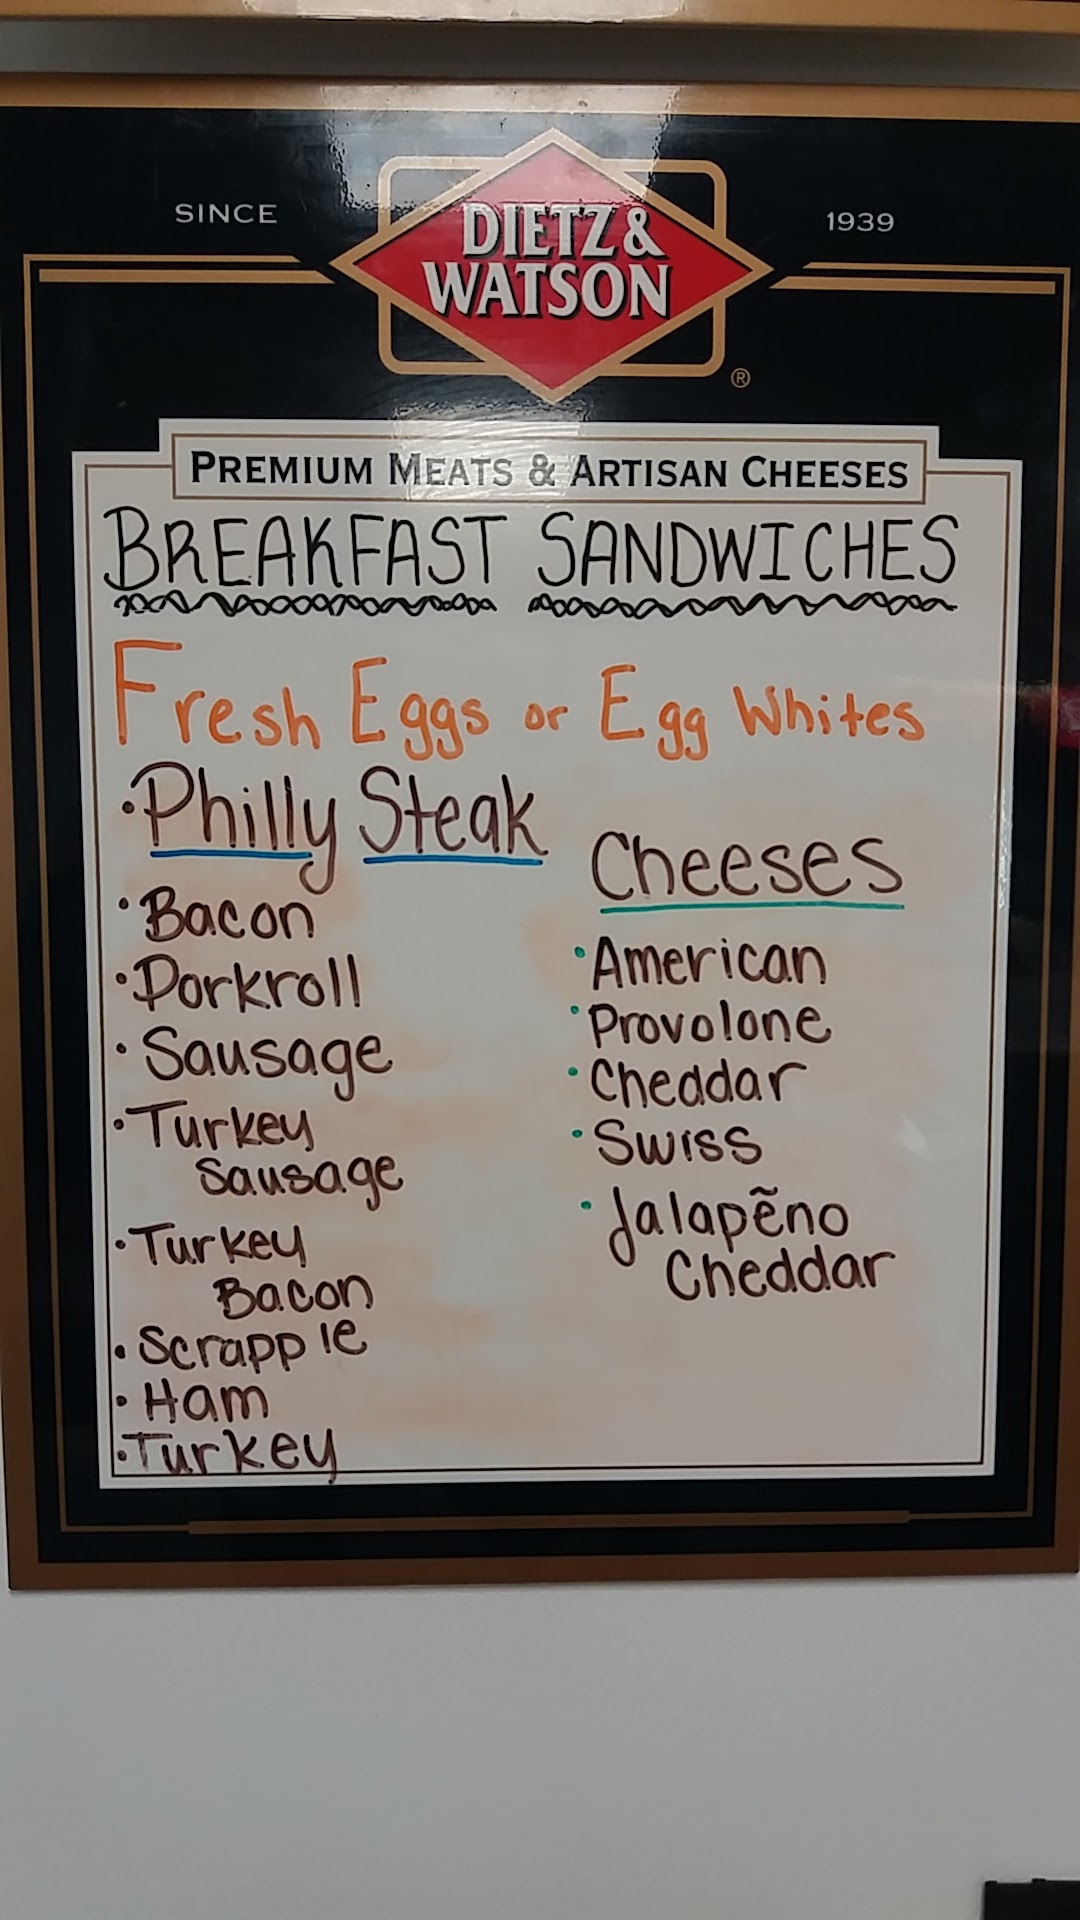 SINCE
DIETZ &
WATSON
1939
®
PREMIUM MEATS & ARTISAN CHEESES
BREAKFAST SANDWICHES
Fresh Eggs or Egg Whites
• Philly Steak
• Bacon
• Porkroll
• Sausage
• Turkey
Sausage
• Turkey
Bacon
• Scrapple
• Ham
• Turkey
Cheeses
• American
• Provolone
• Cheddar
• Swiss
• Jalapẽno
Cheddar